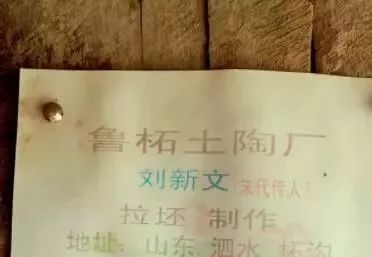 鲁柘土陶厂
刘新文 末代传人
拉坯 制作
地址：山东 泗水 柘沟